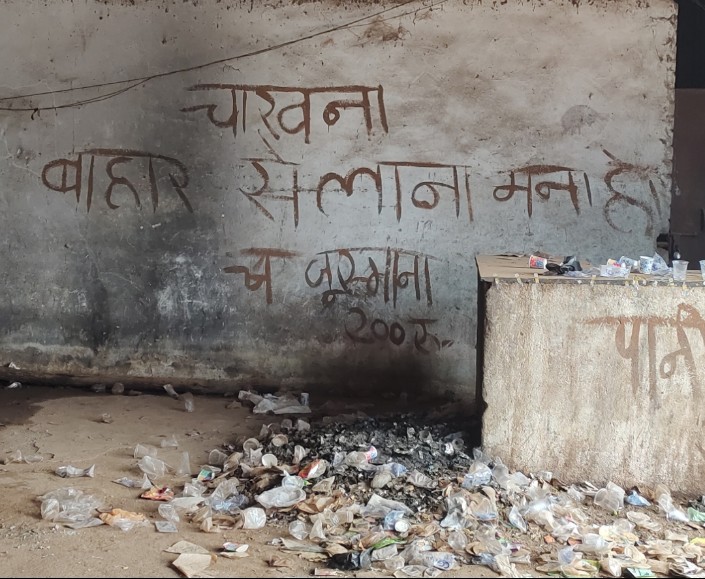 चाखना
बाहार से लाना मना है।
च जूरमाना
२०० रु..
पानी